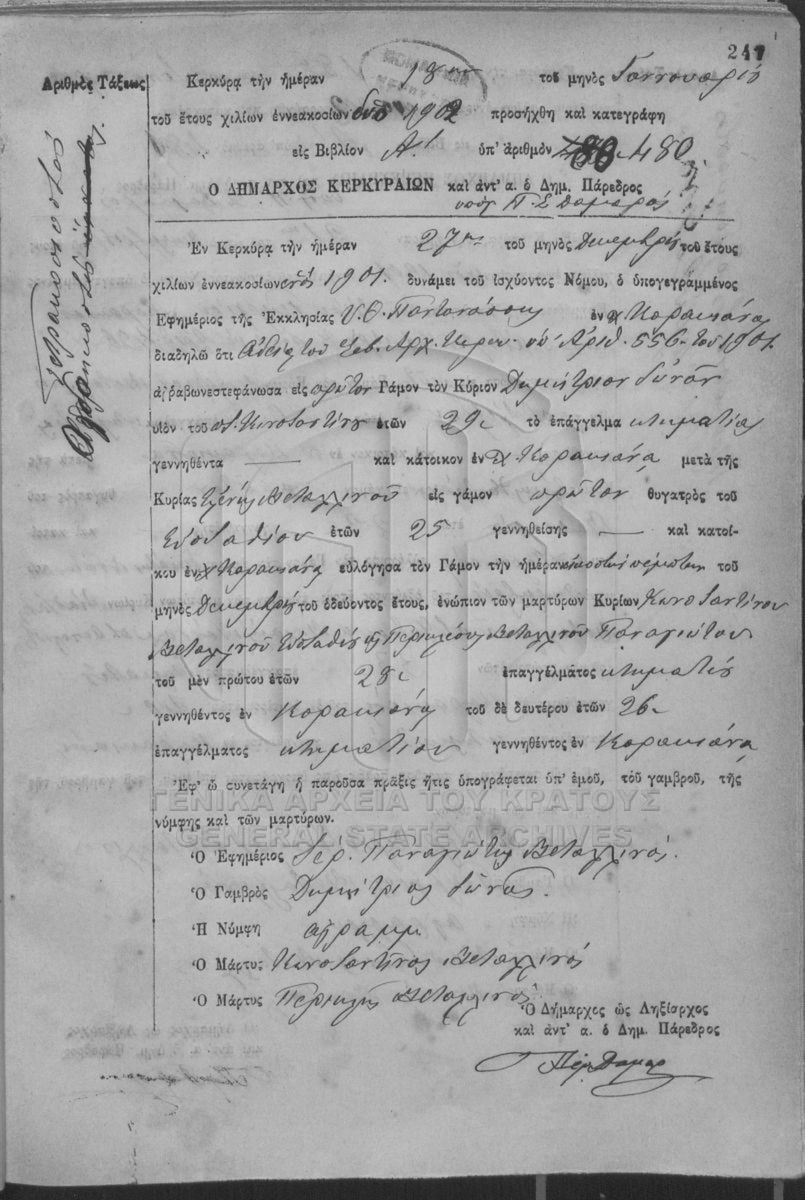 247
Ἀριθμὸς Τάξεως Κερκύρᾳ τὴν ἡμέραν 18ην τοῦ μηνὸς Ἰαννουαρίου
τοῦ ἔτους χιλίων ἐννεακοσίων δύο 1902 προσήχθη καὶ κατεγράφη
εἰς Βιβλίον Α! ὑπ' ἀριθμὸν 480
Ο ΔΗΜΑΡΧΟΣ ΚΕΡΚΥΡΑΙΩΝ καὶ ἀντ' α. ὁ Δημ. Πάρεδρος
Π. Σ. Δαμαρός
Ἐν Κερκύρᾳ τὴν ἡμέραν 27ην τοῦ μηνὸς Δεκεμβρίου τοῦ ἔτους
χιλίων ἐννεακοσίων ἑνός 1901. δυνάμει τοῦ ἰσχύοντος Νόμου, ὁ ὑπογεγραμμένος
Ἐφημέριος τῆς Ἐκκλησίας Υ. Θ. Παντανάσσης ἐν Κορακιάνᾳ
διαδηλῶ ὅτι Ἀδείᾳ τοῦ Σεβ. Ἀρχ. Κερκυ. ὑπ' Ἀριθ. 556. τοῦ 1901.
ἀῤῥαβωνεστεφάνωσα εἰς πρῶτον Γάμον τὸν Κύριον Δημήτριον
υἱὸν τοῦ Κωνσταντίνου ἐτῶν 29 τὸ ἐπάγγελμα κτηματίας
γεννηθέντα — καὶ κάτοικον ἐν Κορακιάνᾳ μετὰ τῆς
Κυρίας Ἑλένης Μεταλλινοῦ εἰς γάμον πρῶτον θυγατρὸς τοῦ
Εὐσταθίου ἐτῶν 25 γεννηθείσης — καὶ κατοί-
κου ἐν Κορακιάνᾳ εὐλόγησα τὸν Γάμον τὴν ἡμέραν εἰκοστὴν πέμπτην τοῦ
μηνὸς Δεκεμβρίου τοῦ ὁδεύοντος ἔτους, ἐνώπιον τῶν μαρτύρων Κυρίων Κωνσταντίνου
Μεταλλινοῦ Εὐσταθίου Περικλέους Μεταλλινοῦ Παναγιώτου
τοῦ μὲν πρώτου ἐτῶν 28 ἐπαγγέλματος κτηματίου
γεννηθέντος ἐν Κορακιάνᾳ τοῦ δὲ δευτέρου ἐτῶν 26
ἐπαγγέλματος κτηματίου γεννηθέντος ἐν Κορακιάνᾳ
Ἐφ' ᾧ συνετάγη ἡ παροῦσα πρᾶξις ἥτις ὑπογράφεται ὑπ' ἐμοῦ, τοῦ γαμβροῦ, τῆς
νύμφης καὶ τῶν μαρτύρων.
ΓΕΝΙΚΑ ΑΡΧΕΙΑ ΤΟΥ ΚΡΑΤΟΥΣ
GENERAL STATE ARCHIVES
Ὁ Ἐφημέριος Ἱερ. Παναγιώτης Μεταλλινός.
Ὁ Γαμβρὸς Δημήτριος
Ἡ Νύμφη ἀγραμμ
Ὁ Μάρτυς Κωνσταντῖνος Μεταλλινός
Ὁ Μάρτυς Περικλῆς Μεταλλινός
Ὁ Δήμαρχος ὡς Ληξίαρχος
καὶ ἀντ' α. ὁ Δημ. Πάρεδρος